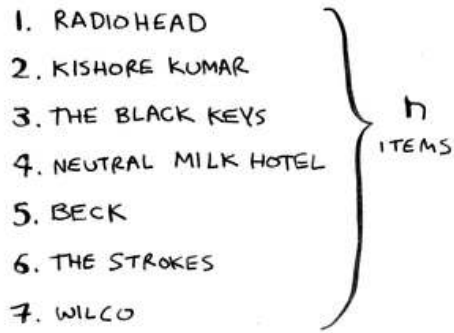 1. RADIOHEAD
2. KISHORE KUMAR
3. THE BLACK KEYS
4. NEUTRAL MILK HOTEL
5. BECK
6. THE STROKES
7. WILCO
n
ITEMS